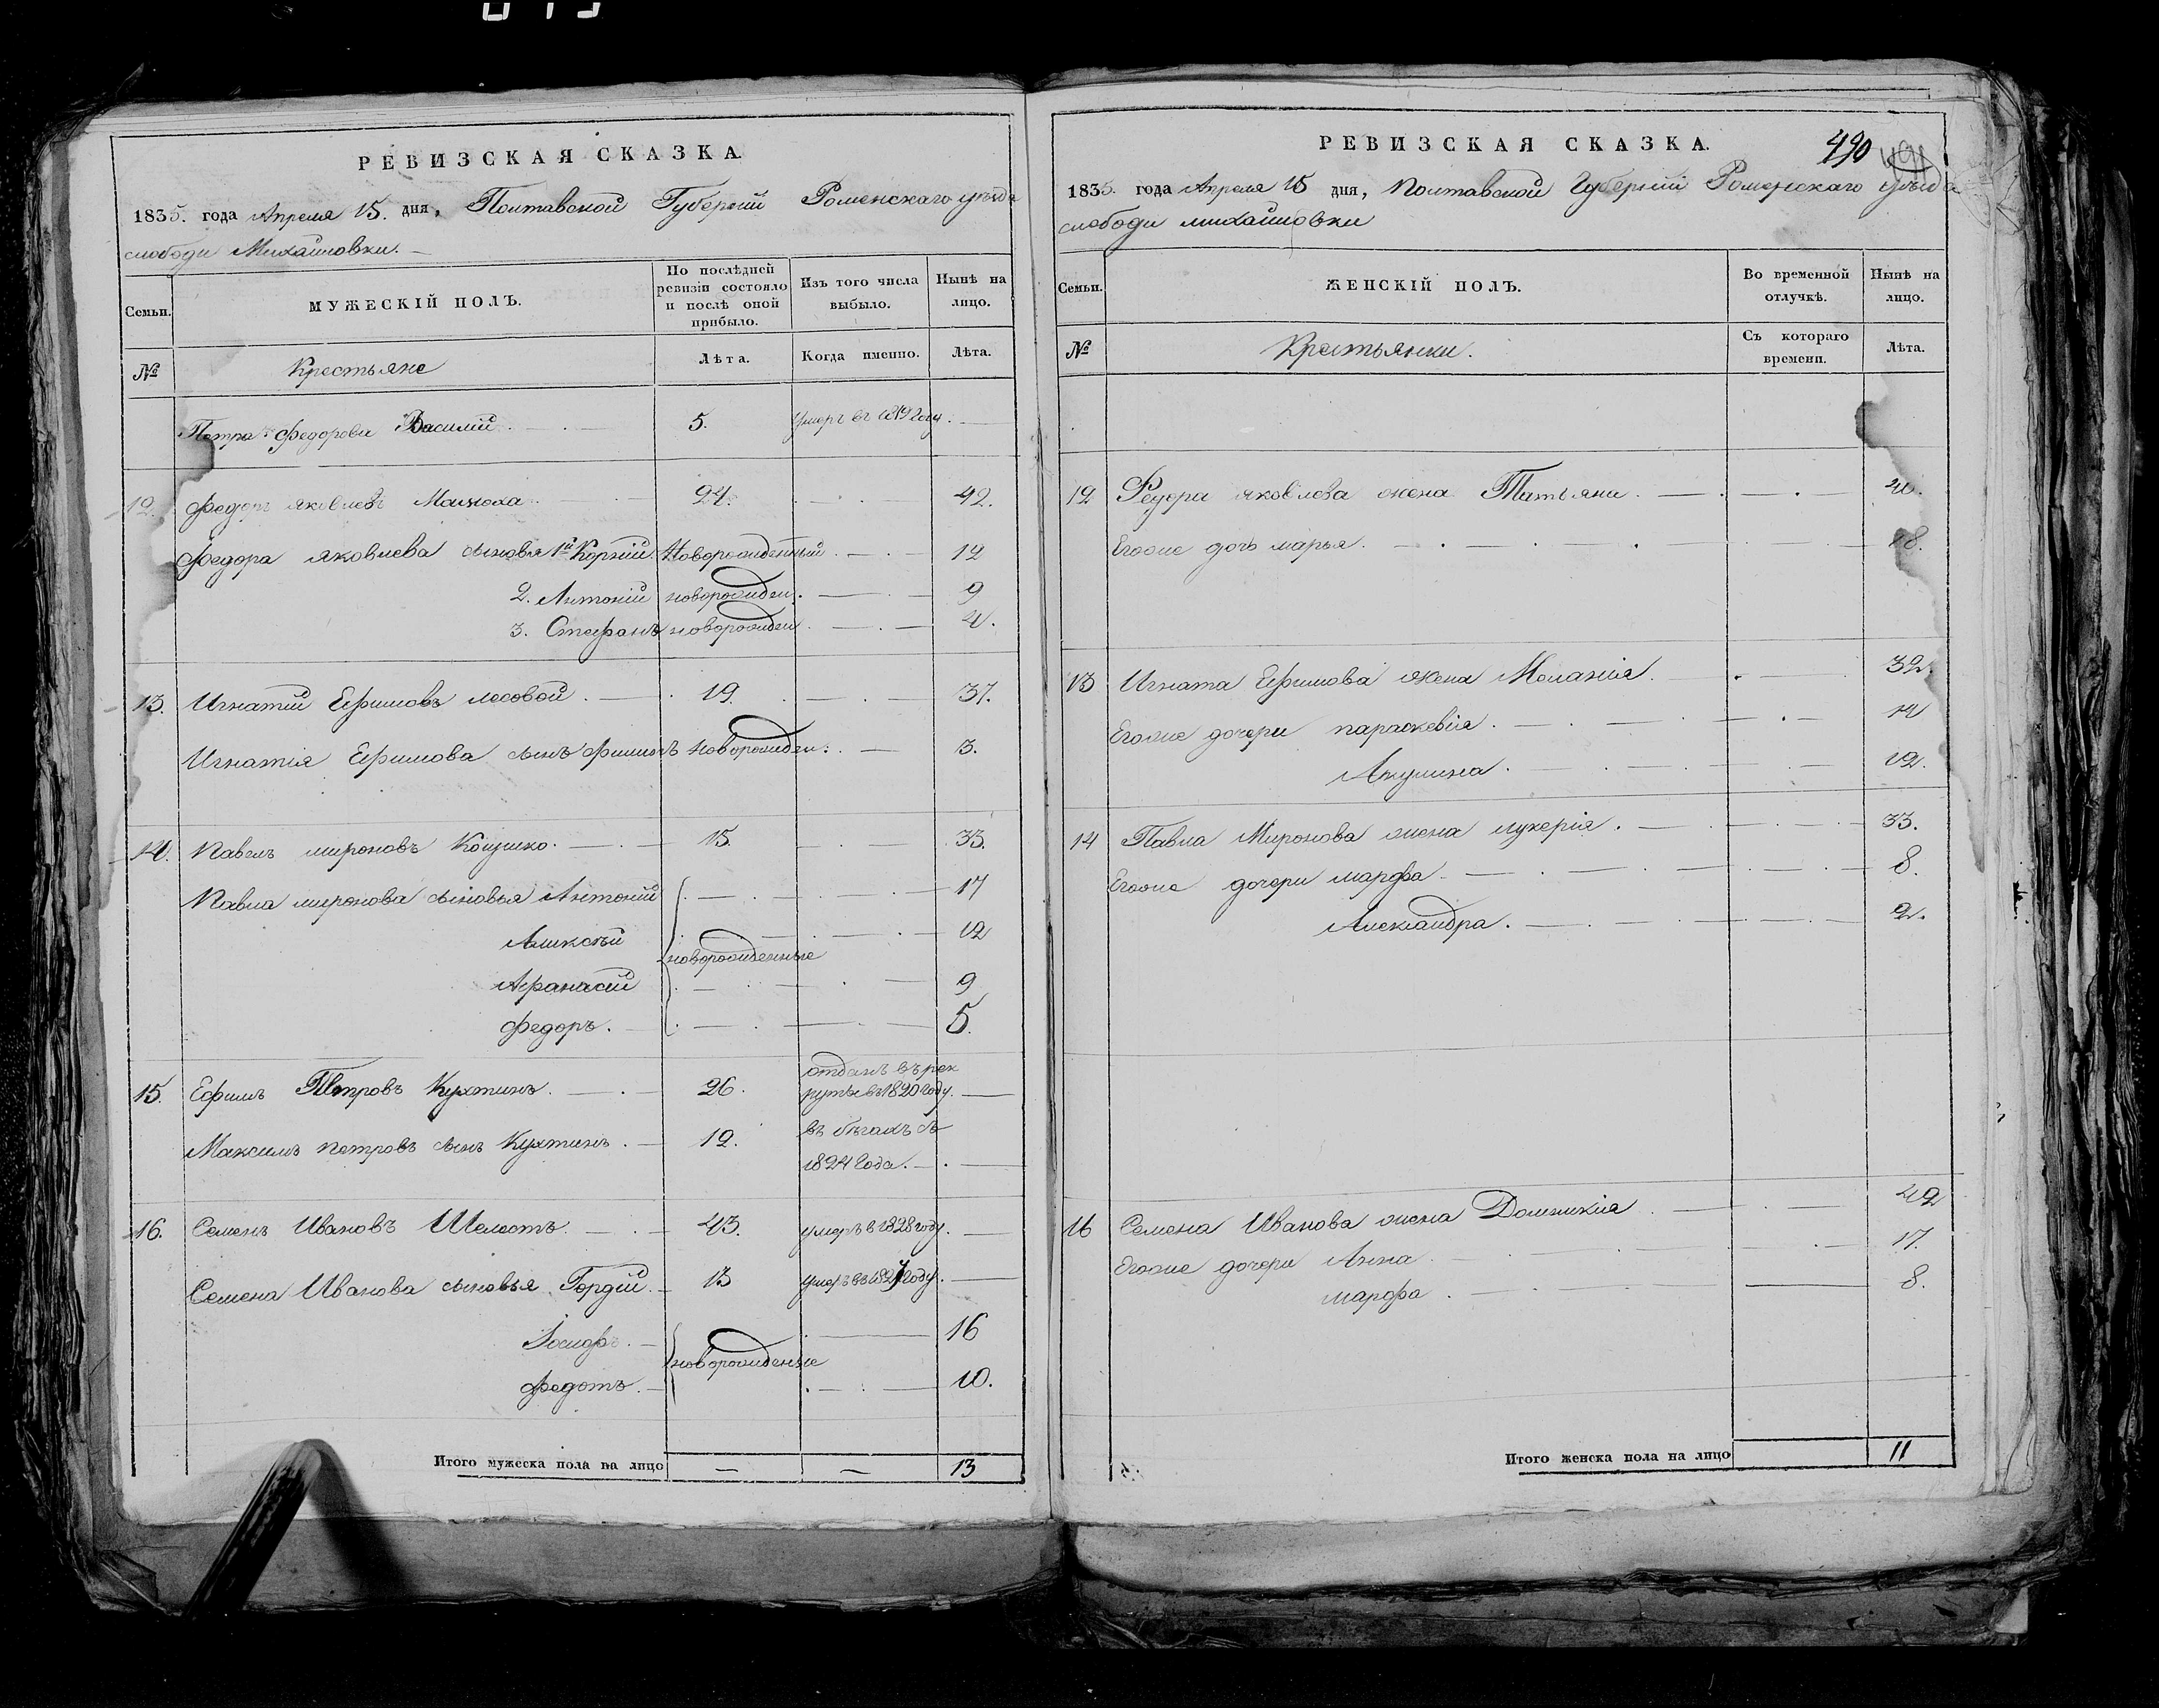 РЕВИЗСКАЯ СКАЗКА.
1835. года Апреля 15. дня, Полтавской Губерніи Роменскаго уѣзда
слободи Михайловки.
Семьи. МУЖЕСКІЙ ПОЛЪ. По послѣдней ревизіи состояло и послѣ оной прибыло. Изъ того числа выбыло. Нынѣ на лицо.
№ Крестьяне Лѣта. Когда именно. Лѣта.
Петра Федорови Василій 5. умеръ въ 1819 году.
12. Федоръ яковлевъ 24. 42.
Федора яковлева сыновя 1й Корній Новорожденный 12
2. Антоній новорожден. 9
3. Стефанъ новорожден 4.
13. Игнатій Ефимовъ лесовой 19. 37.
Игнатія Ефимова сынъ Филипъ новорожден: 3.
14. Павелъ мироновъ 15. 33.
Павла миронова сыновья Антоній 17
Аликсѣй 12
новорожденные
Афанасій 9
Федоръ. 5.
15. Ефимъ Петровъ Кухтинъ. 26. отданъ въ рек
руты въ 1820 году.
Максимъ петровъ сынъ Кухтинъ. 12. въ бѣгахъ съ
1824 года.
16. Семенъ Ивановъ Шелестъ. 43. умеръ в 1828 году.
Семена Иванова сыновья Гордій. 13 умеръ въ 1827 году.
Іосифъ 16
новорожденые
Федотъ. 10.
Итого мужеска пола на лицо — — 13
РЕВИЗСКАЯ СКАЗКА.
490
1835. года Апреля 15 дня, Полтавской Губерніи Роменскаго уѣзда
слободи михайловки
Семьи. ЖЕНСКІЙ ПОЛЪ. Во временной отлучкѣ. Нынѣ на лицо.
№ Крестьянки. Съ котораго времени. Лѣта.
12 Федора яковлева жена Татьяна. 40.
Егоже дочь марья. 18.
13 Игната Ефимова жена Меланія. 32.
Егоже дочери параскевія. 14
Акулина. 12.
14 Павла Миронова жена лукерія. 33.
Егоже дочери марфа 8.
Александра. 2.
16 Семена Иванова жена Домникія 42
Егоже дочери Анна 17.
марфа. 8.
Итого женска пола на лицо 11